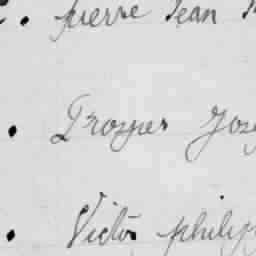 pierre Jean
Prosper Jos
Victor philip